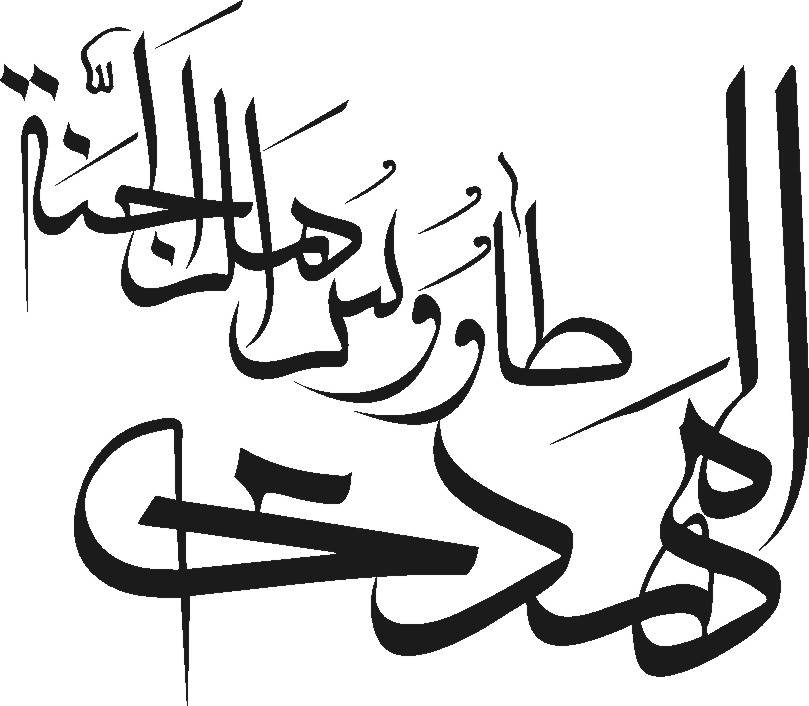 المهدي
طاووس اهل الجنّة